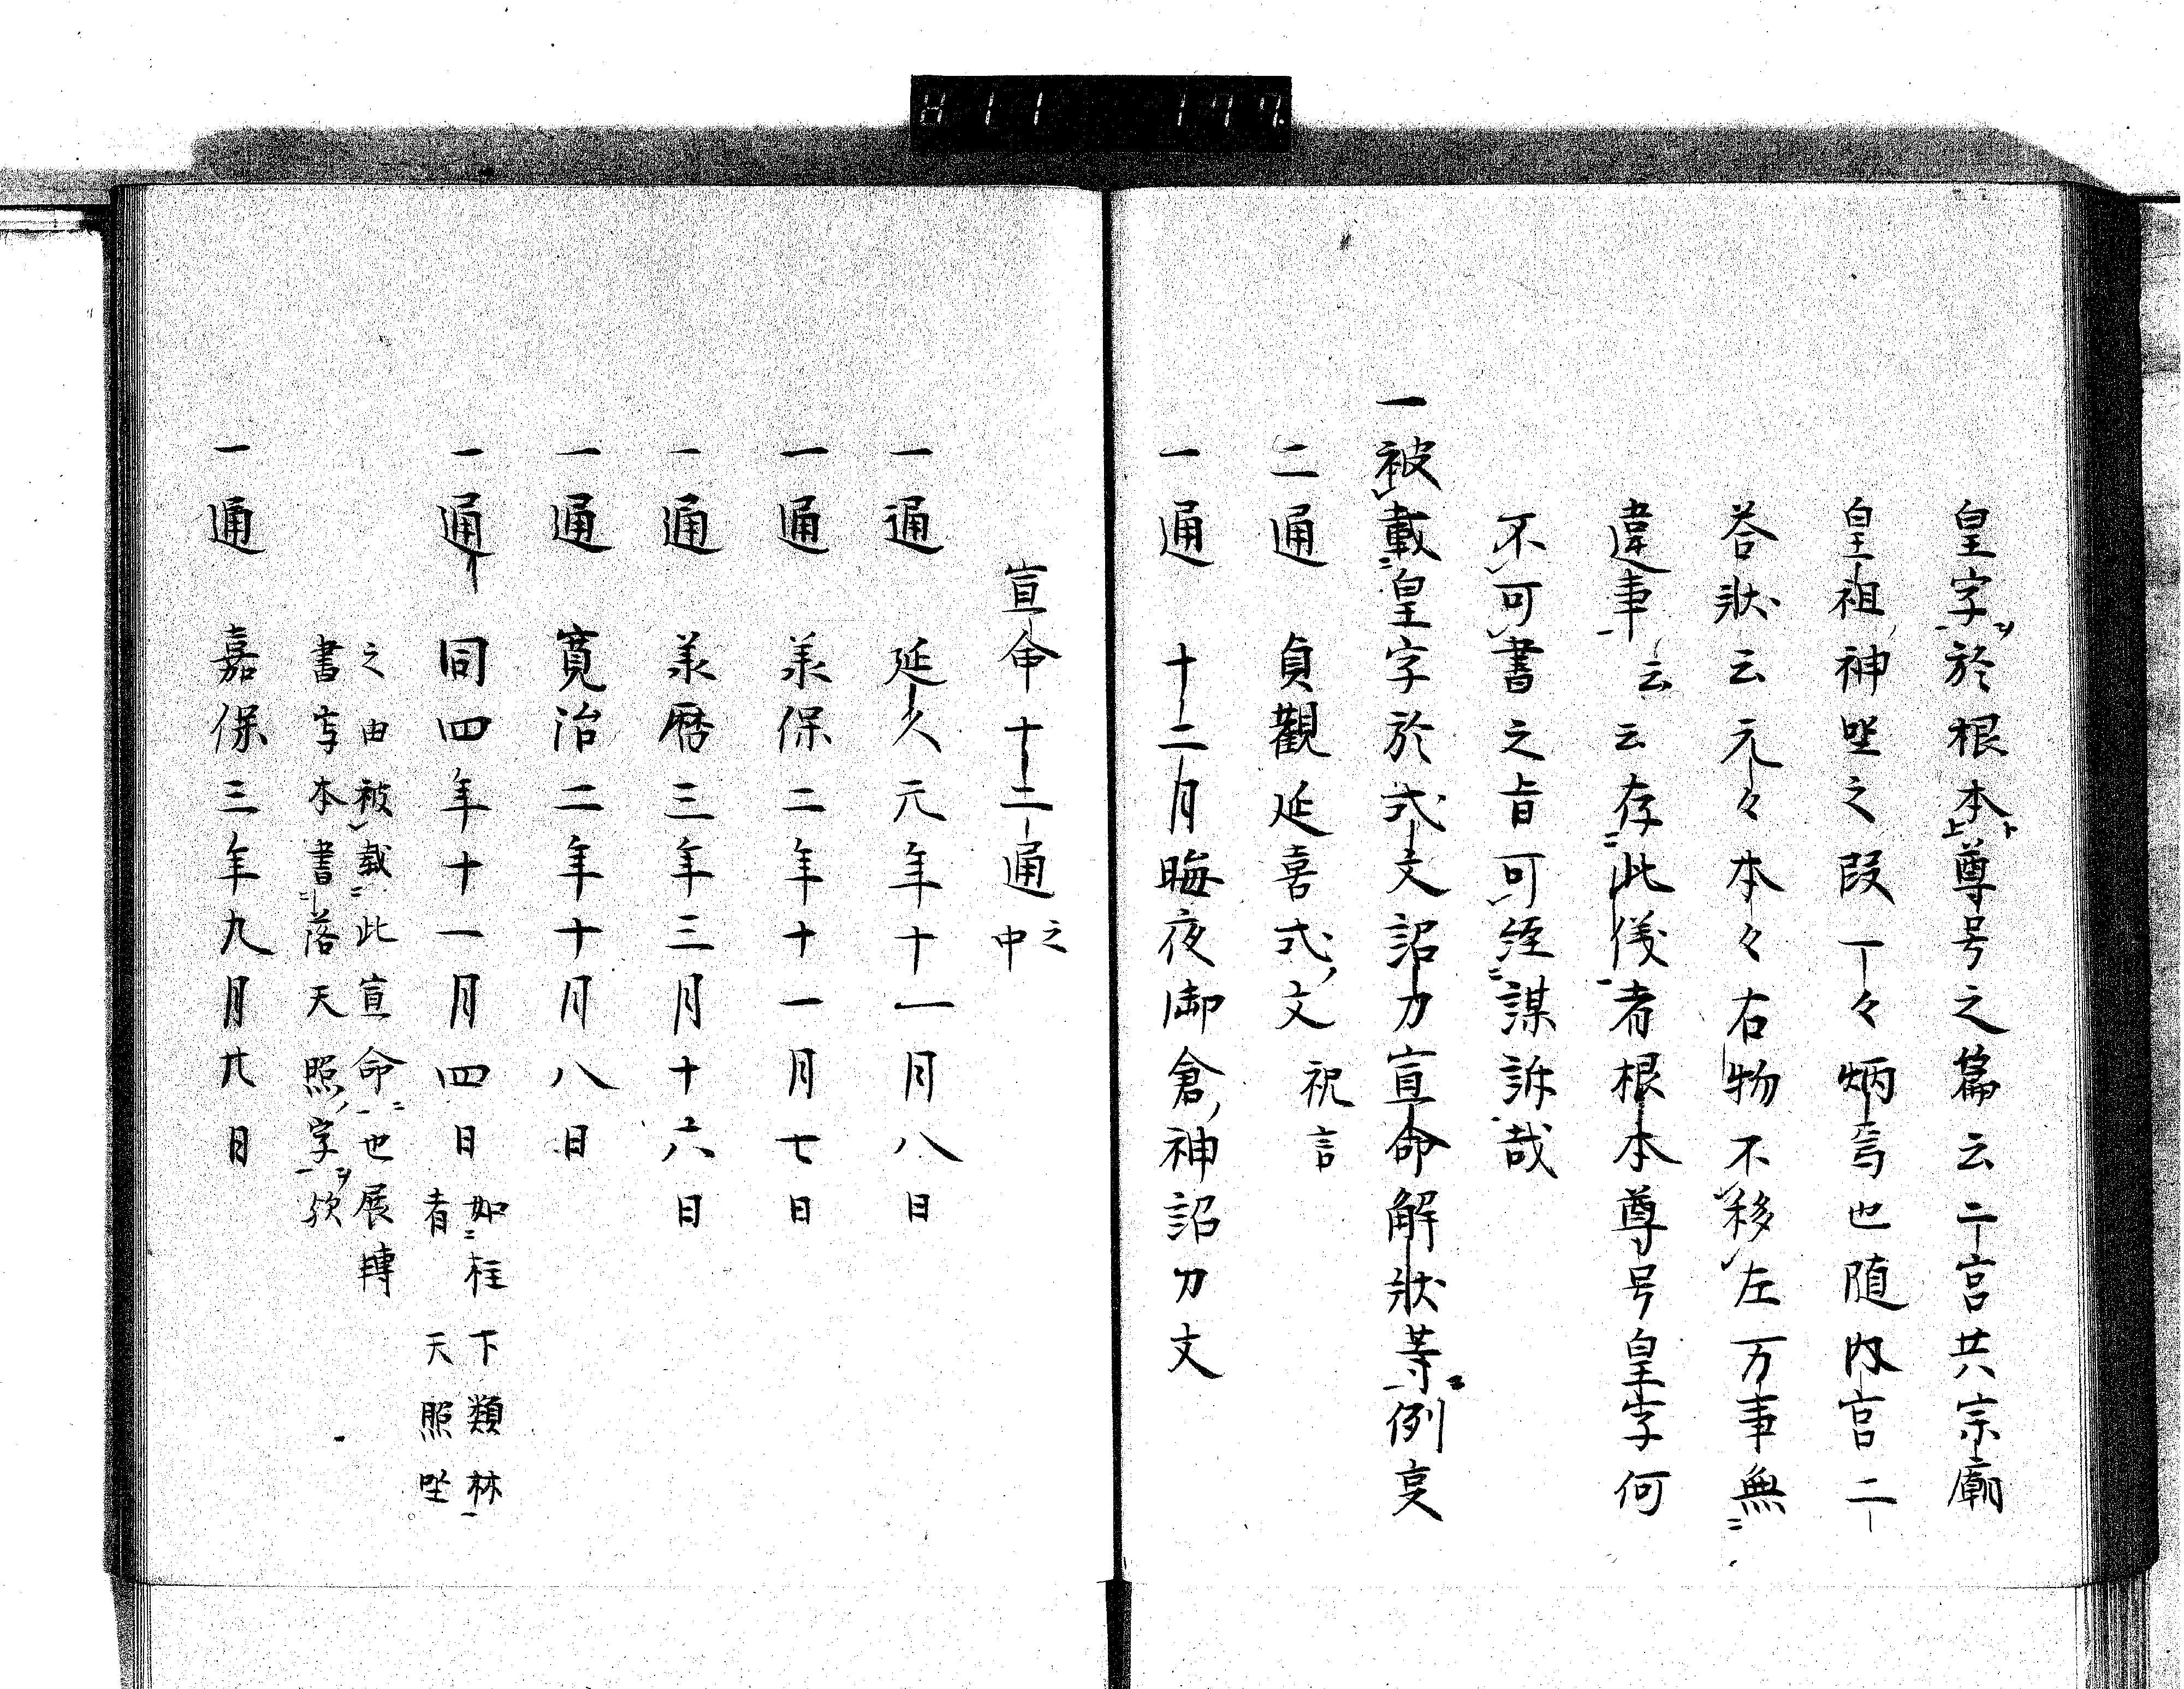 皇字ヲ於根本ト尊号之篇云二宮共宗廟
皇祖神坐之段一々炳焉也随内宮二
答状云元々本々右物不移左万事無
違事云云云存此儀者根本尊号皇字何
不可書之旨可経謀訴哉
一被載皇字於式文詔刀宣命解状等例㕝
二通 貞観延喜式文 祝言
一通 十二月晦夜御倉神詔刀文
宣命十二通之中
一通 延久元年十一月八日
一通 承保二年十一月七日
一通 承暦三年三月十六日
一通 寛治二年十月八日
一通 同四年十一月四日 如柱下類林
者 天照坐
之由被載此宣命也展轉
書写本書落天照字ヲ欤
一通 嘉保三年九月廿日